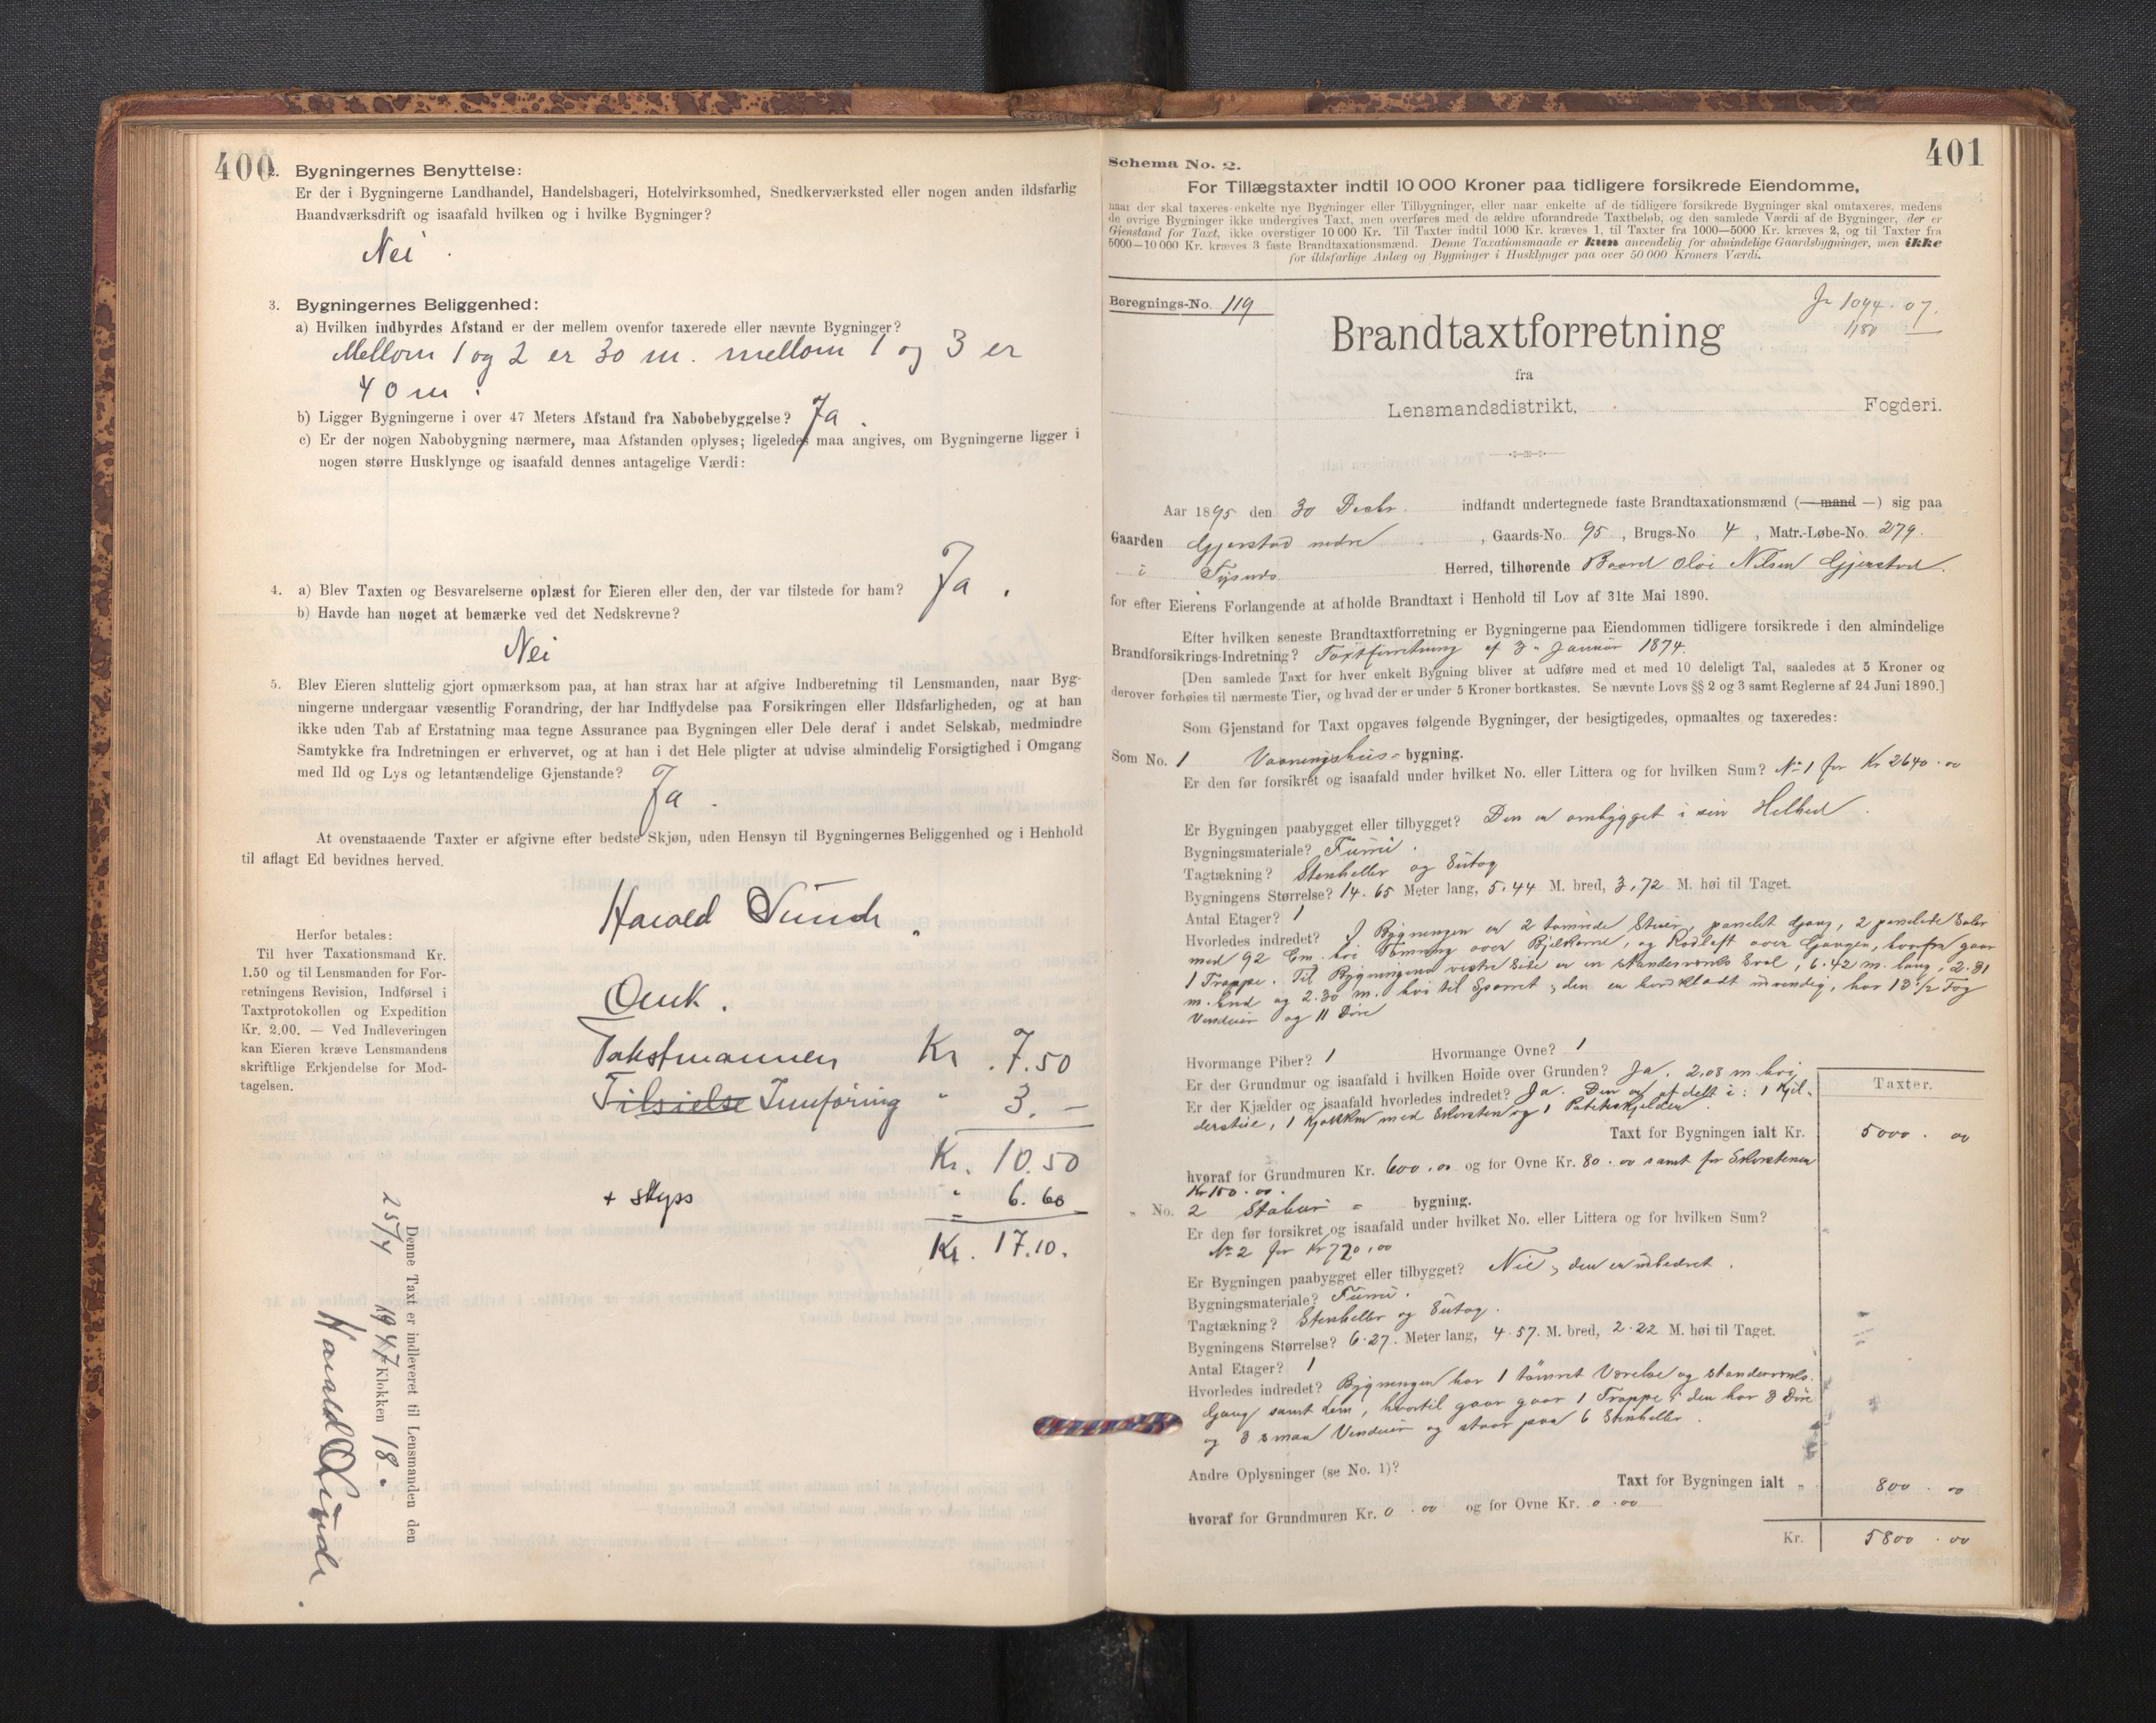 400
2. Bygningernes Benyttelse:
Er der i Bygningerne Landhandel, Handelsbageri, Hotelvirksomhed, Snedkerværksted eller nogen anden ildsfarlig
Haandværksdrift og isaafald hvilken og i hvilke Bygninger?
Nei.
3. Bygningernes Beliggenhed:
a) Hvilken indbyrdes Afstand er der mellem ovenfor taxerede eller nævnte Bygninger?
Mellom 1 og 2 er 30 m. mellom 1 og 3 er
40 m.
b) Ligger Bygningerne i over 47 Meters Afstand fra Nabobebyggelse? Ja.
c) Er der nogen Nabobygning nærmere, maa Afstanden oplyses; ligeledes maa angives, om Bygningerne ligger i
nogen større Husklynge og isaafald dennes antagelige Værdi:
4. a) Blev Taxten og Besvarelserne oplæst for Eieren eller den, der var tilstede for ham? Ja.
b) Havde han noget at bemærke ved det Nedskrevne?
Nei
5. Blev Eieren sluttelig gjort opmærksom paa, at han strax har at afgive Indberetning til Lensmanden, naar Byg-
ningerne undergaar væsentlig Forandring, der har Indflydelse paa Forsikringen eller Ildsfarligheden, og at han
ikke uden Tab af Erstatning maa tegne Assurance paa Bygningen eller Dele deraf i andet Selskab, medmindre
Samtykke fra Indretningen er erhvervet, og at han i det Hele pligter at udvise almindelig Forsigtighed i Omgang
med Ild og Lys og letantændelige Gjenstande? Ja.
At ovenstaaende Taxter er afgivne efter bedste Skjøn, uden Hensyn til Bygningernes Beliggenhed og i Henhold
til aflagt Ed bevidnes herved.
Harald
Herfor betales:
Til hver Taxationsmand Kr.
1.50 og til Lensmanden for For-
retningens Revision, Indførsel i
Taxtprotokollen og Expedition
Kr. 2.00. — Ved Indleveringen
kan Eieren kræve Lensmandens
skriftlige Erkjendelse for Mod-
tagelsen.
Takstmannen Kr. 7.50
Tilsielse Innføring " 3.—
Kr. 10.50
+ skyss " 6.60
Kr. 17.10.
Denne Taxt er indleveret til Lensmanden den
25/4 1947 Klokken 18.
Harald
401
Schema No. 2.
For Tillægstaxter indtil 10 000 Kroner paa tidligere forsikrede Eiendomme,
naar der skal taxeres enkelte nye Bygninger eller Tilbygninger, eller naar enkelte af de tidligere forsikrede Bygninger skal omtaxeres, medens
de øvrige Bygninger ikke undergives Taxt, men overføres med de ældre uforandrede Taxtbeløb, og den samlede Værdi af de Bygninger, der er
Gjenstand for Taxt, ikke overstiger 10 000 Kr. Til Taxter indtil 1000 Kr. kræves 1, til Taxter fra 1000—5000 Kr. kræves 2, og til Taxter fra
5000—10 000 Kr. kræves 3 faste Brandtaxationsmænd. Denne Taxationsmaade er kun anvendelig for almindelige Gaardsbygninger, men ikke
for ildsfarlige Anlæg og Bygninger i Husklynger paa over 50 000 Kroners Værdi.
Beregnings-No. 119
Jr 1094. 07.
1180
Brandtaxtforretning
fra
Lensmandsdistrikt, Fogderi.
Aar 1895 den 30 Decbr. indfandt undertegnede faste Brandtaxationsmænd (— mand —) sig paa
Gaarden Gjerstad nedre, Gaards-No. 95, Brugs-No 4, Matr.-Løbe-No. 279.
i Tysnes Herred, tilhørende Baard Oloi Nilsen Gjerstad.
for efter Eierens Forlangende at afholde Brandtaxt i Henhold til Lov af 31te Mai 1890.
Efter hvilken seneste Brandtaxtforretning er Bygningerne paa Eiendommen tidligere forsikrede i den almindelige
Brandforsikrings-Indretning? Taxtforretning af 3. Januar 1874.
[Den samlede Taxt for hver enkelt Bygning bliver at udføre med et med 10 deleligt Tal, saaledes at 5 Kroner og
derover forhøies til nærmeste Tier, og hvad der er under 5 Kroner bortkastes. Se nævnte Lovs §§ 2 og 3 samt Reglerne af 24 Juni 1890.]
Som Gjenstand for Taxt opgaves følgende Bygninger, der besigtigedes, opmaaltes og taxeredes:
Som No. 1 Vaaningshus-bygning.
Er den før forsikret og isaafald under hvilket No. eller Littera og for hvilken Sum? No 1 for Kr 2640.00
Er Bygningen paabygget eller tilbygget? Den er ombygget i sin Helhed.
Bygningsmateriale? Furru.
Tagtækning? Stenheller og Sutag
Bygningens Størrelse? 14.65 Meter lang, 5.44 M. bred, 3.72 M. høi til Taget.
Antal Etager? 1
Hvorledes indredet? I Bygningen er 2 tømrede Stuer, panelet Gang, 2 panelede Saler
med 92 Cm. høi Tømring over Bjelkerne, og Rodloft over Gangen, hvorfra gaar
1 Trappe. Til Bygningens vestre Side er en standerværks Sval, 6.42 m. lang, 2.81
m. bred og 2.30 m. høi til Sparret; den er bordklædt udvendig, har 13 1/2 Fag
Vinduer og 11 Døre
Hvormange Piber? 1 Hvormange Ovne? 1
Er der Grundmur og isaafald i hvilken Høide over Grunden? Ja. 2.08 m. høi
Er der Kjælder og isaafald hvorledes indredet? Ja. Den er afdelt i: 1 Kjel-
derstue, 1 Kjøkken med Skorsten og 1 Potetskjelder.
Taxter.
Taxt for Bygningen ialt Kr. 5000.00
hvoraf for Grundmuren Kr. 600.00 og for Ovne Kr. 80.00 samt for Skorstenen
Kr 100.00.
" No. 2 Stabur-bygning.
Er den før forsikret og isaafald under hvilket No. eller Littera og for hvilken Sum?
No 2 for Kr 720.00
Er Bygningen paabygget eller tilbygget? Nei, den er udbedret.
Bygningsmateriale? Furru.
Tagtækning? Stenheller og Sutag.
Bygningens Størrelse? 6.27. Meter lang, 4.57. M. bred, 2.22 M. høi til Taget.
Antal Etager? 1
Hvorledes indredet? Bygningen har 1 tømret Værelse og standerværks.
Gang samt Lem, hvortil gaar gaar 1 Trappe; den har 3 Døre
og 3 smaa Vinduer og staar paa 6 Stenheller.
Andre Oplysninger (se No. 1)?
Taxt for Bygningen ialt " 800.00
hvoraf for Grundmuren Kr. 0.00 og for Ovne Kr. 0.00
Kr. 5800.00